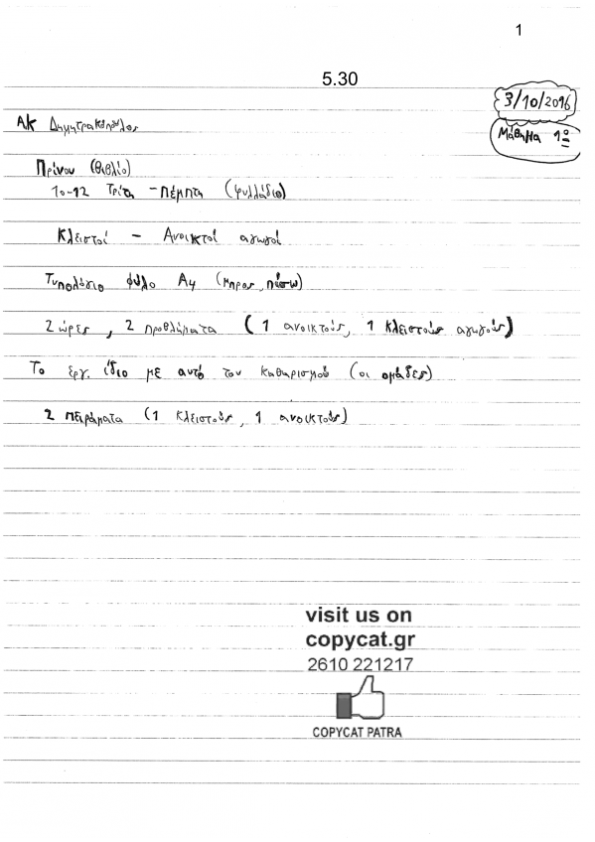 1
5.30
3/10/2016
Μάθημα 1ο
ΑΚ Δημητρακόπουλος
Πρίνου (βιβλίο)
10-12 Τρίτη - Πέμπτη (φυλλάδιο)
Κλειστοί - Ανοικτοί αγωγοί
Τυπολόγιο φύλλο Α4 (μπρος, πίσω)
2 ώρες, 2 προβλήματα (1 ανοικτούς, 1 κλειστούς αγωγούς)
Το εργ. ίδιο με αυτό του καθαρισμού (οι ομάδες)
2 πειράματα (1 κλειστούς, 1 ανοικτούς)
visit us on
copycat.gr
2610 221217
COPYCAT PATRA